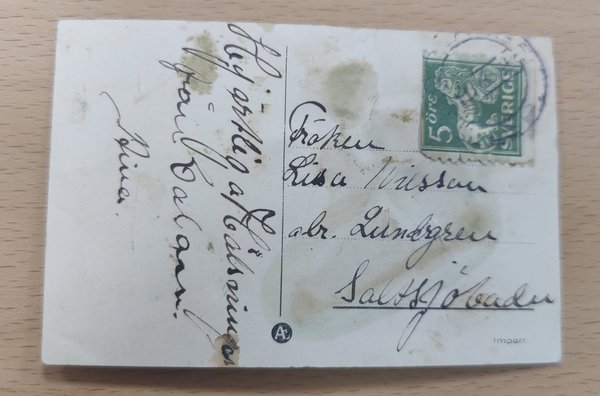 Hjärtliga Hälsningar
från Dalarn.
Nina.
Fröken
Lisa Nilsson
adr. Lundgren
Saltsjöbaden
5 ÖRE
SVERIGE
Æ
Import